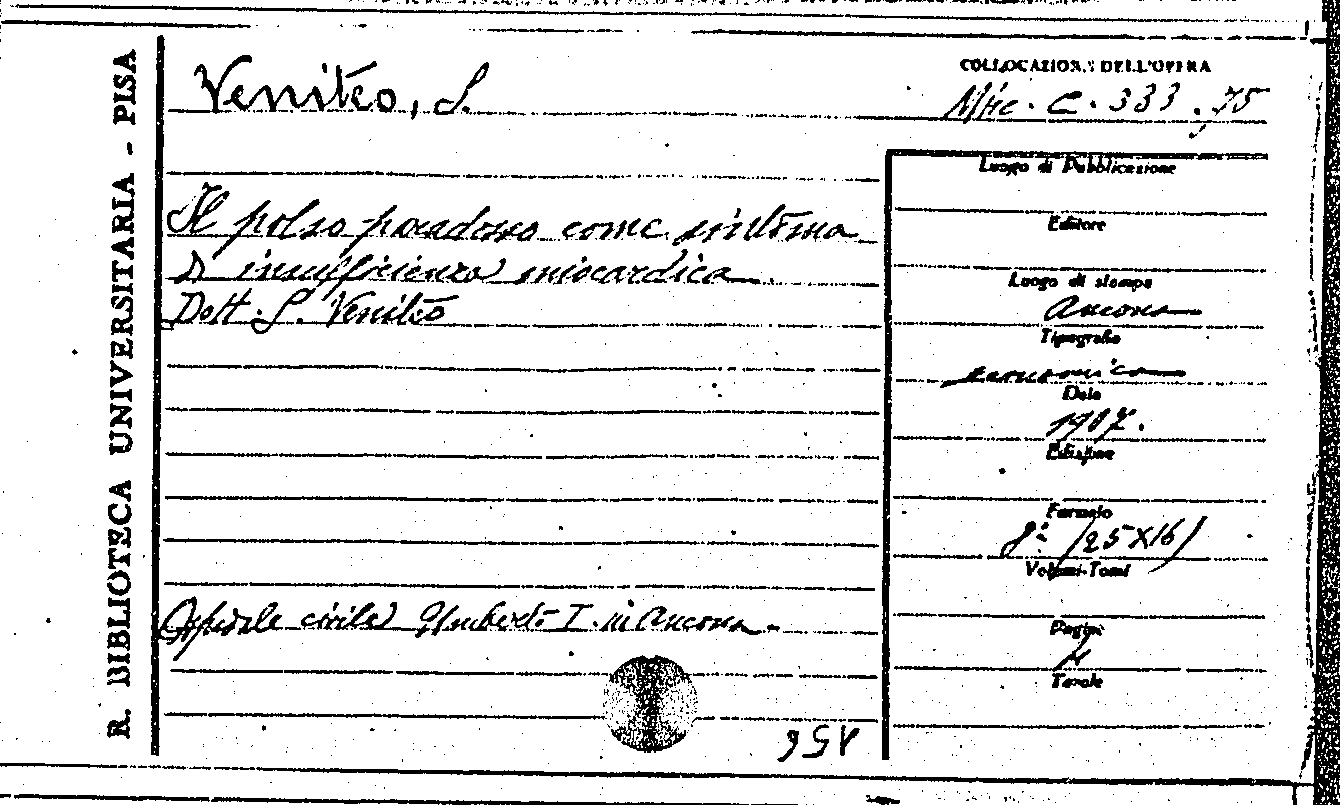 R. BIBLIOTECA UNIVERSITARIA - PISA
Veniteo, S.
COLLOCAZIONE DELL'OPERA
Misc. C. 333, 75
Il polso paradosso come sintoma
d'insufficienza miocardica
Dott. S. Veniteo
Ospedale civile Umberto I in Ancona.
Luogo di Pubblicazione
Editore
Luogo di stampa
Ancona
Tipografia
economica
Data
1907.
Edizione
Formato
8º (25x16)
Volumi-Tomi
Pagine
Tavole